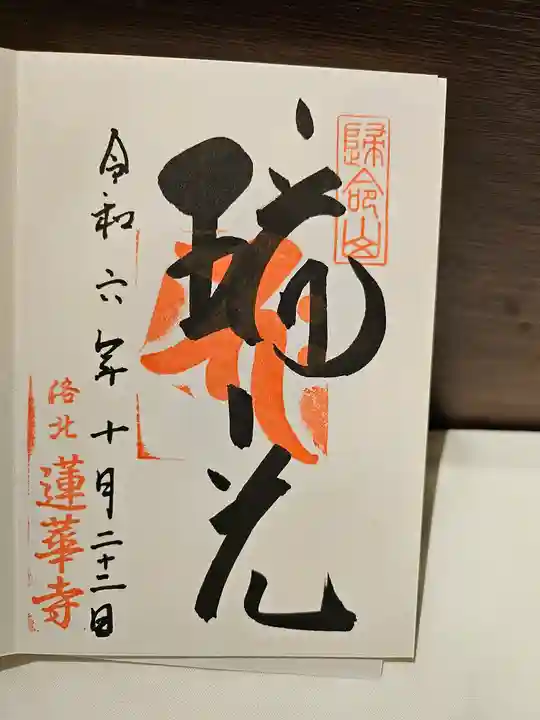 歸命山
瑞花
令和六年十月二十二日
洛北 蓮華寺